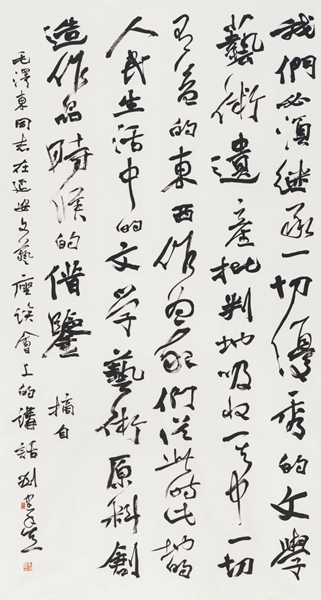 我們必須继承一切優秀的文學
藝術遺產批判地吸收其中一切
有益的東西作為我們從此時此地的
人民生活中的文學藝術原料創
造作品時候的借鑒 摘自
毛澤東同志在延安文藝座談會上的講話